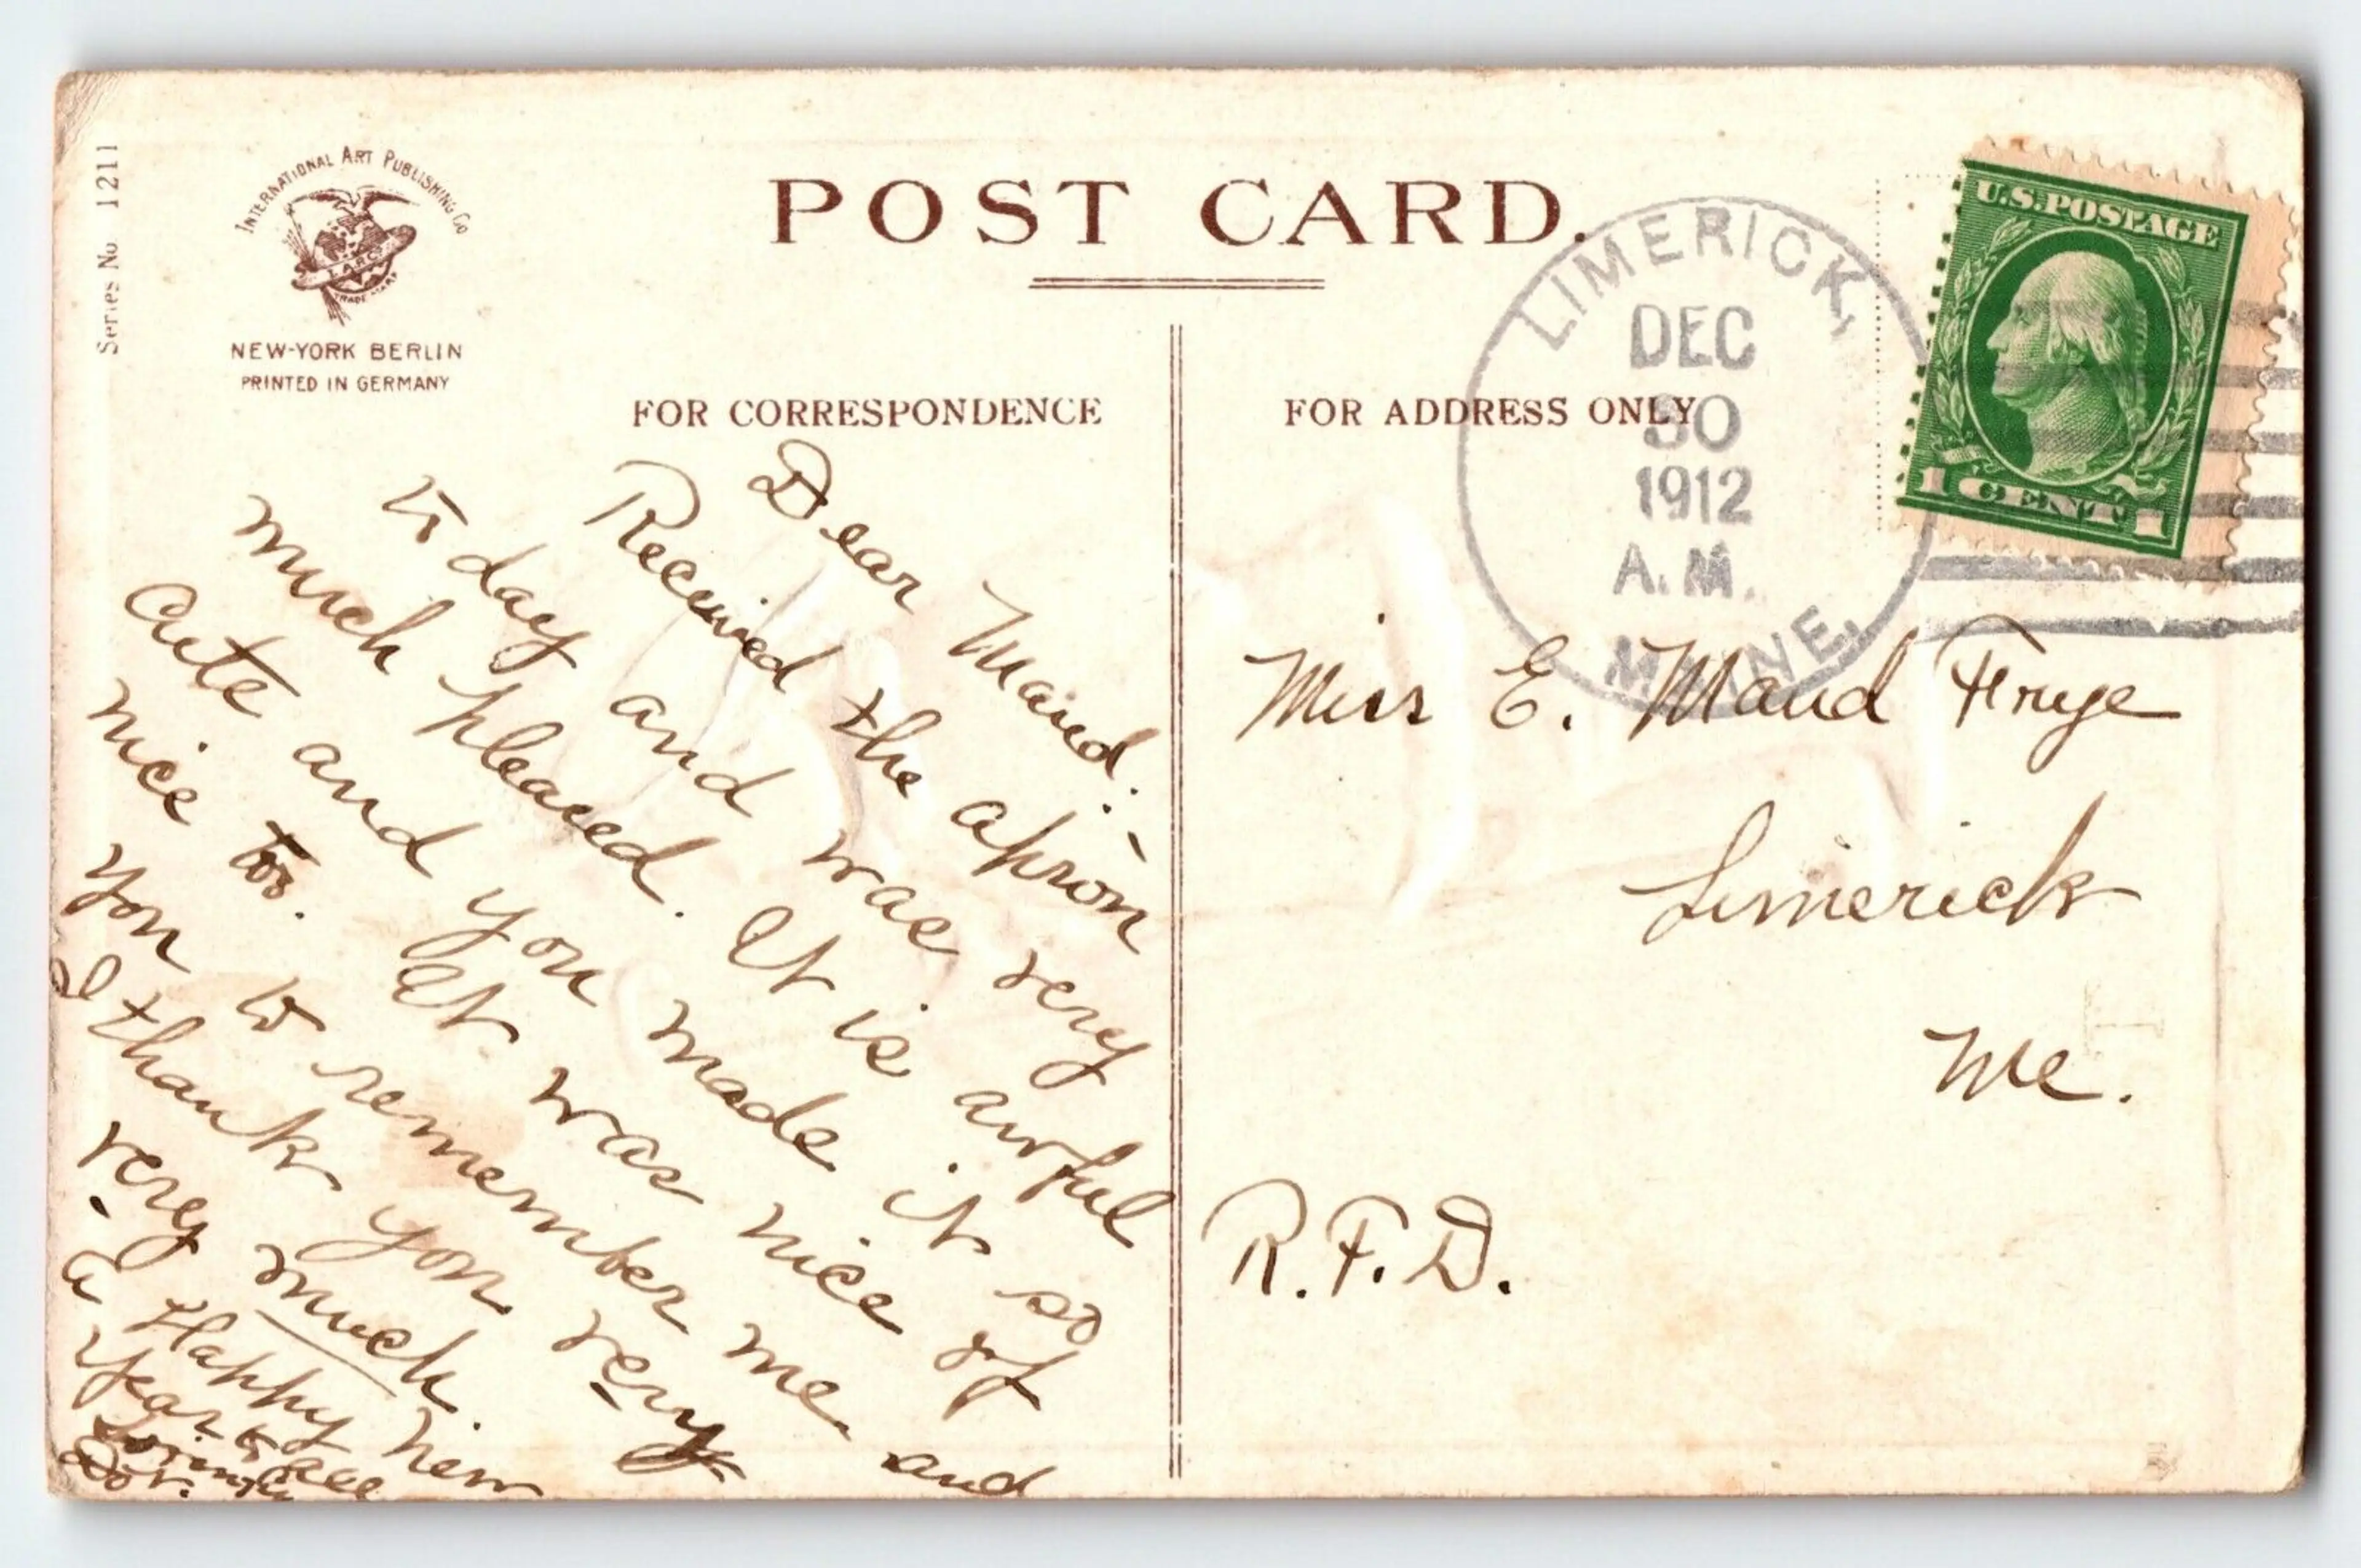 Series No 1211
INTERNATIONAL ART PUBLISHING CO
I.A.P.C.
TRADE MARK
NEW-YORK BERLIN
PRINTED IN GERMANY
POST CARD.
FOR CORRESPONDENCE
Dear Maud:-
Received the apron
to day and was very
much pleased. It is awful
cute and you made it so
nice too. It was nice of
you to remember me and
I thank you very
very much.
A Happy New
Year to all
Lovingly
Dot.
FOR ADDRESS ONLY
LIMERICK,
DEC
30
1912
A.M.
MAINE.
U.S. POSTAGE
1 CENT 1
Miss E. Maud Frye
Limerick
Me.
R.F.D.